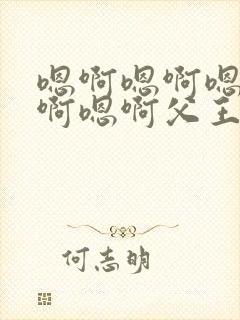 嗯啊嗯啊嗯
啊嗯啊父王
何志明